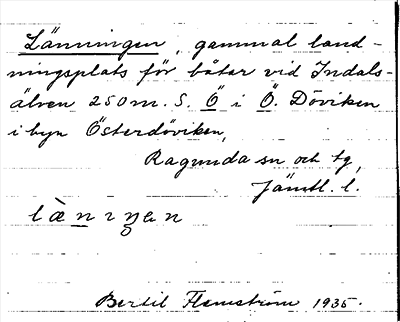 Länningen, gammal land-
ningsplats för båtar vid Indals-
älven 250 m. S. Ö i Ö. Döviken
i byn Österdöviken,
Ragunda sn och tg,
Jämtl. l.
Bertil Flemström 1935.